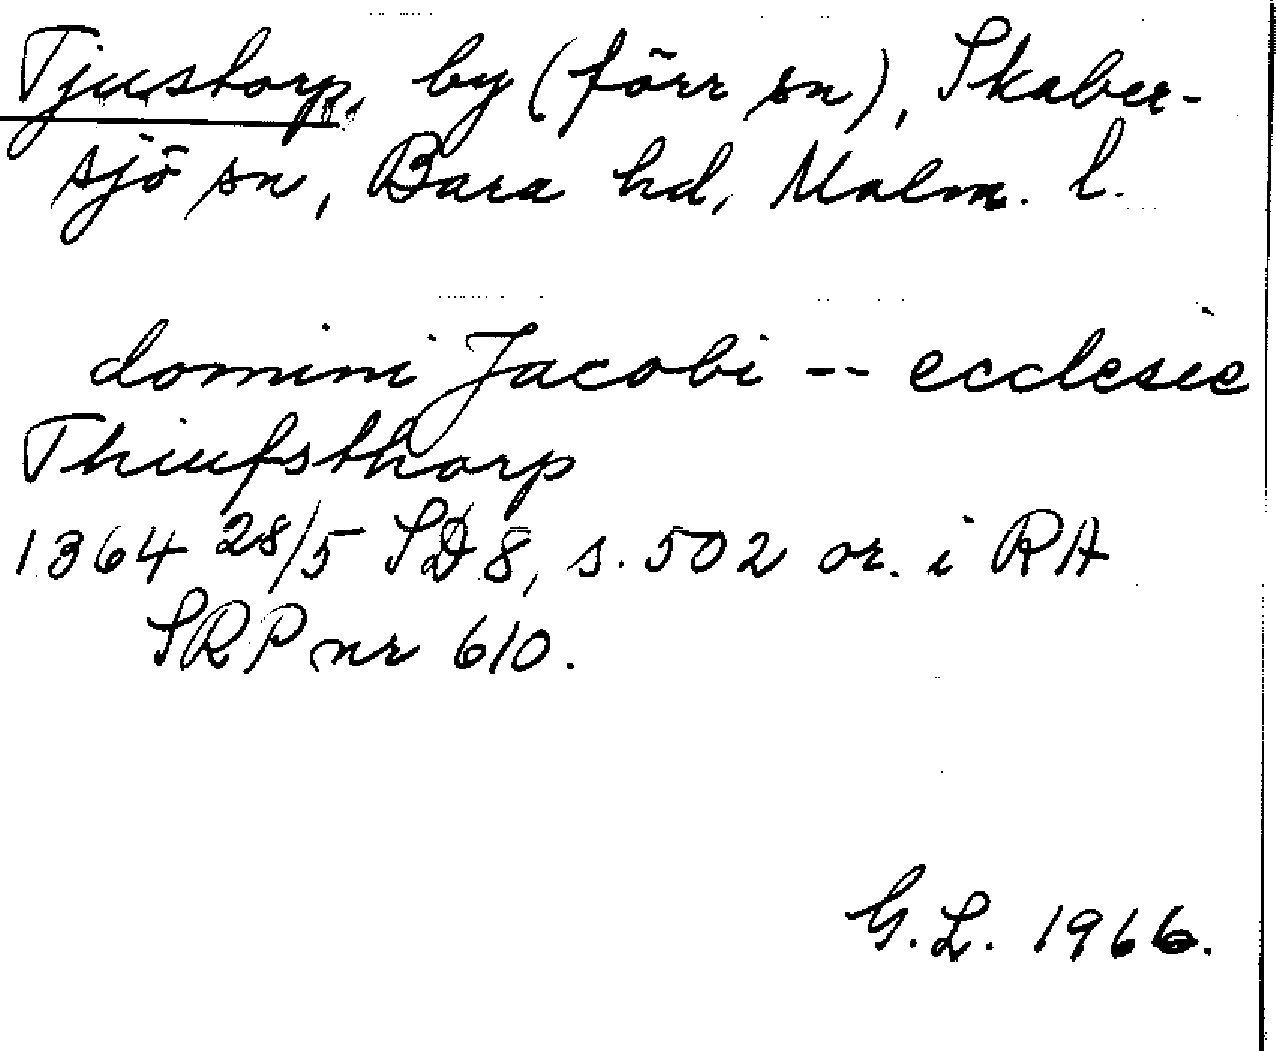 Tjustorp, by (förr sn), Skaber-
sjö sn, Bara hd, Malm. l.
domini Jacobi -- ecclesie
Thiufsthorp
1364 28/5 SD 8, s. 502 or. i RA
SRP nr 610.
G.L. 1966.